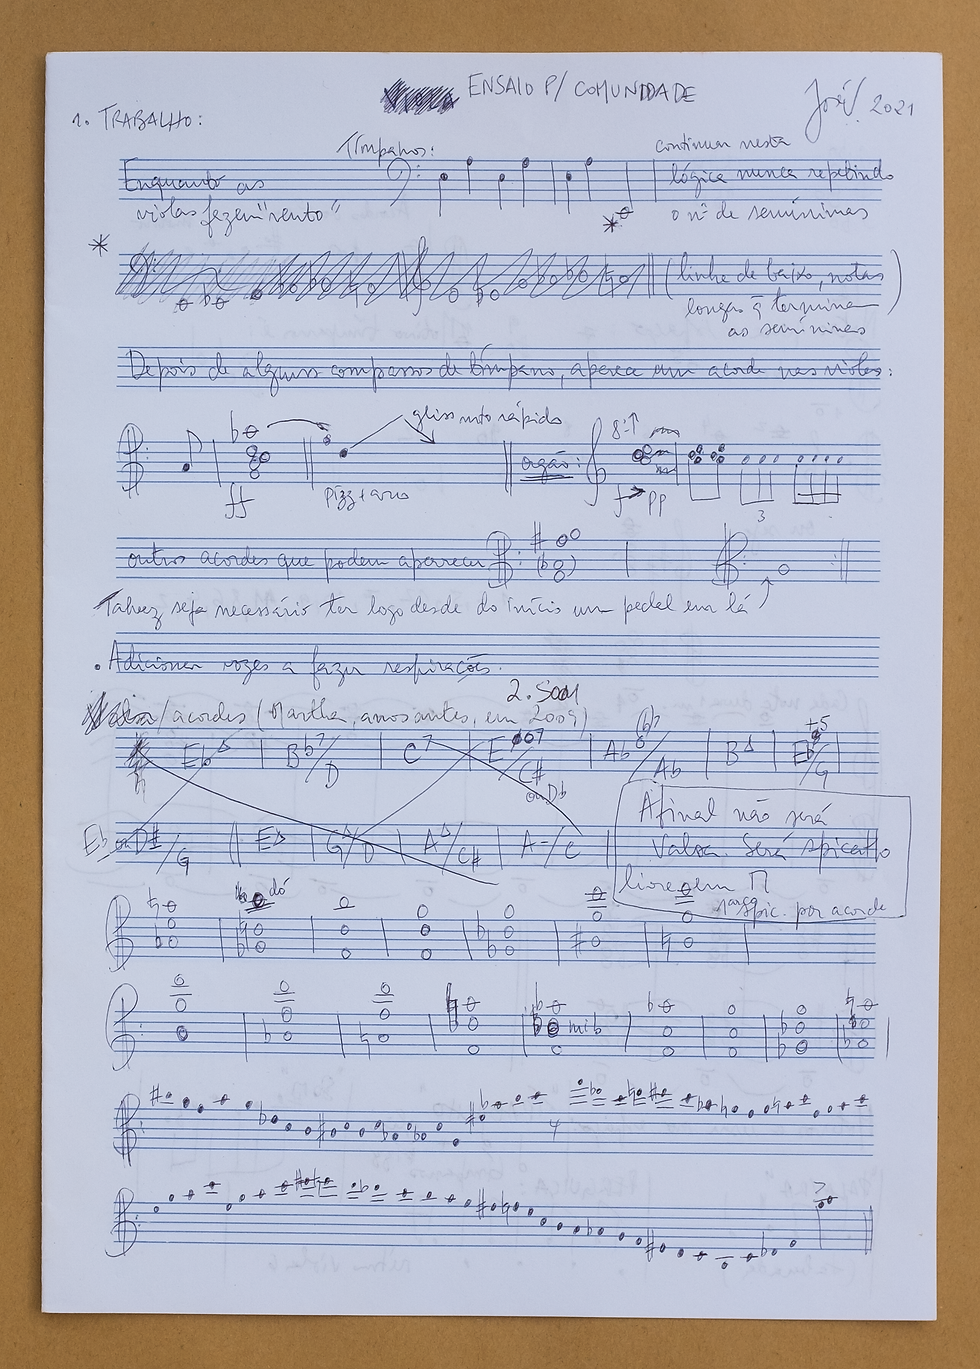 ENSAIO P/ COMUNIDADE
José! 2021
1. TRABALHO:
Tímpanos:
Enquanto as
violas fazem "vento"
continuar nesta
lógica nunca repetindo
o nº de semínimas
*
*
(linha de baixo, notas
longas q̃ terminam
as semínimas)
Depois de alguns compassos de tímpano, aparece um acorde nas violas:
gliss muto rápido
ff
pizz + arco
ação:
8ª↑
f → pp
3
outros acordes que podem aparecer
Talvez seja necessário ter logo desde do início um pedal em lá
. Adicionar vozes a fazer respirações.
2. Soam
/acordes (Martha, anos antes, em 2009)
Eb△ | Bb7/D | C7 | Eø7/C# ou Db | Ab6(b7)/Ab | B△ | Eb+5/G
Eb ou D#/G || E△ | G△/D | A△/C# | A-/C
Afinal não será
Valsa. Será spicatto
livre em Π
1 arco spic. por acorde
dó
mib
4